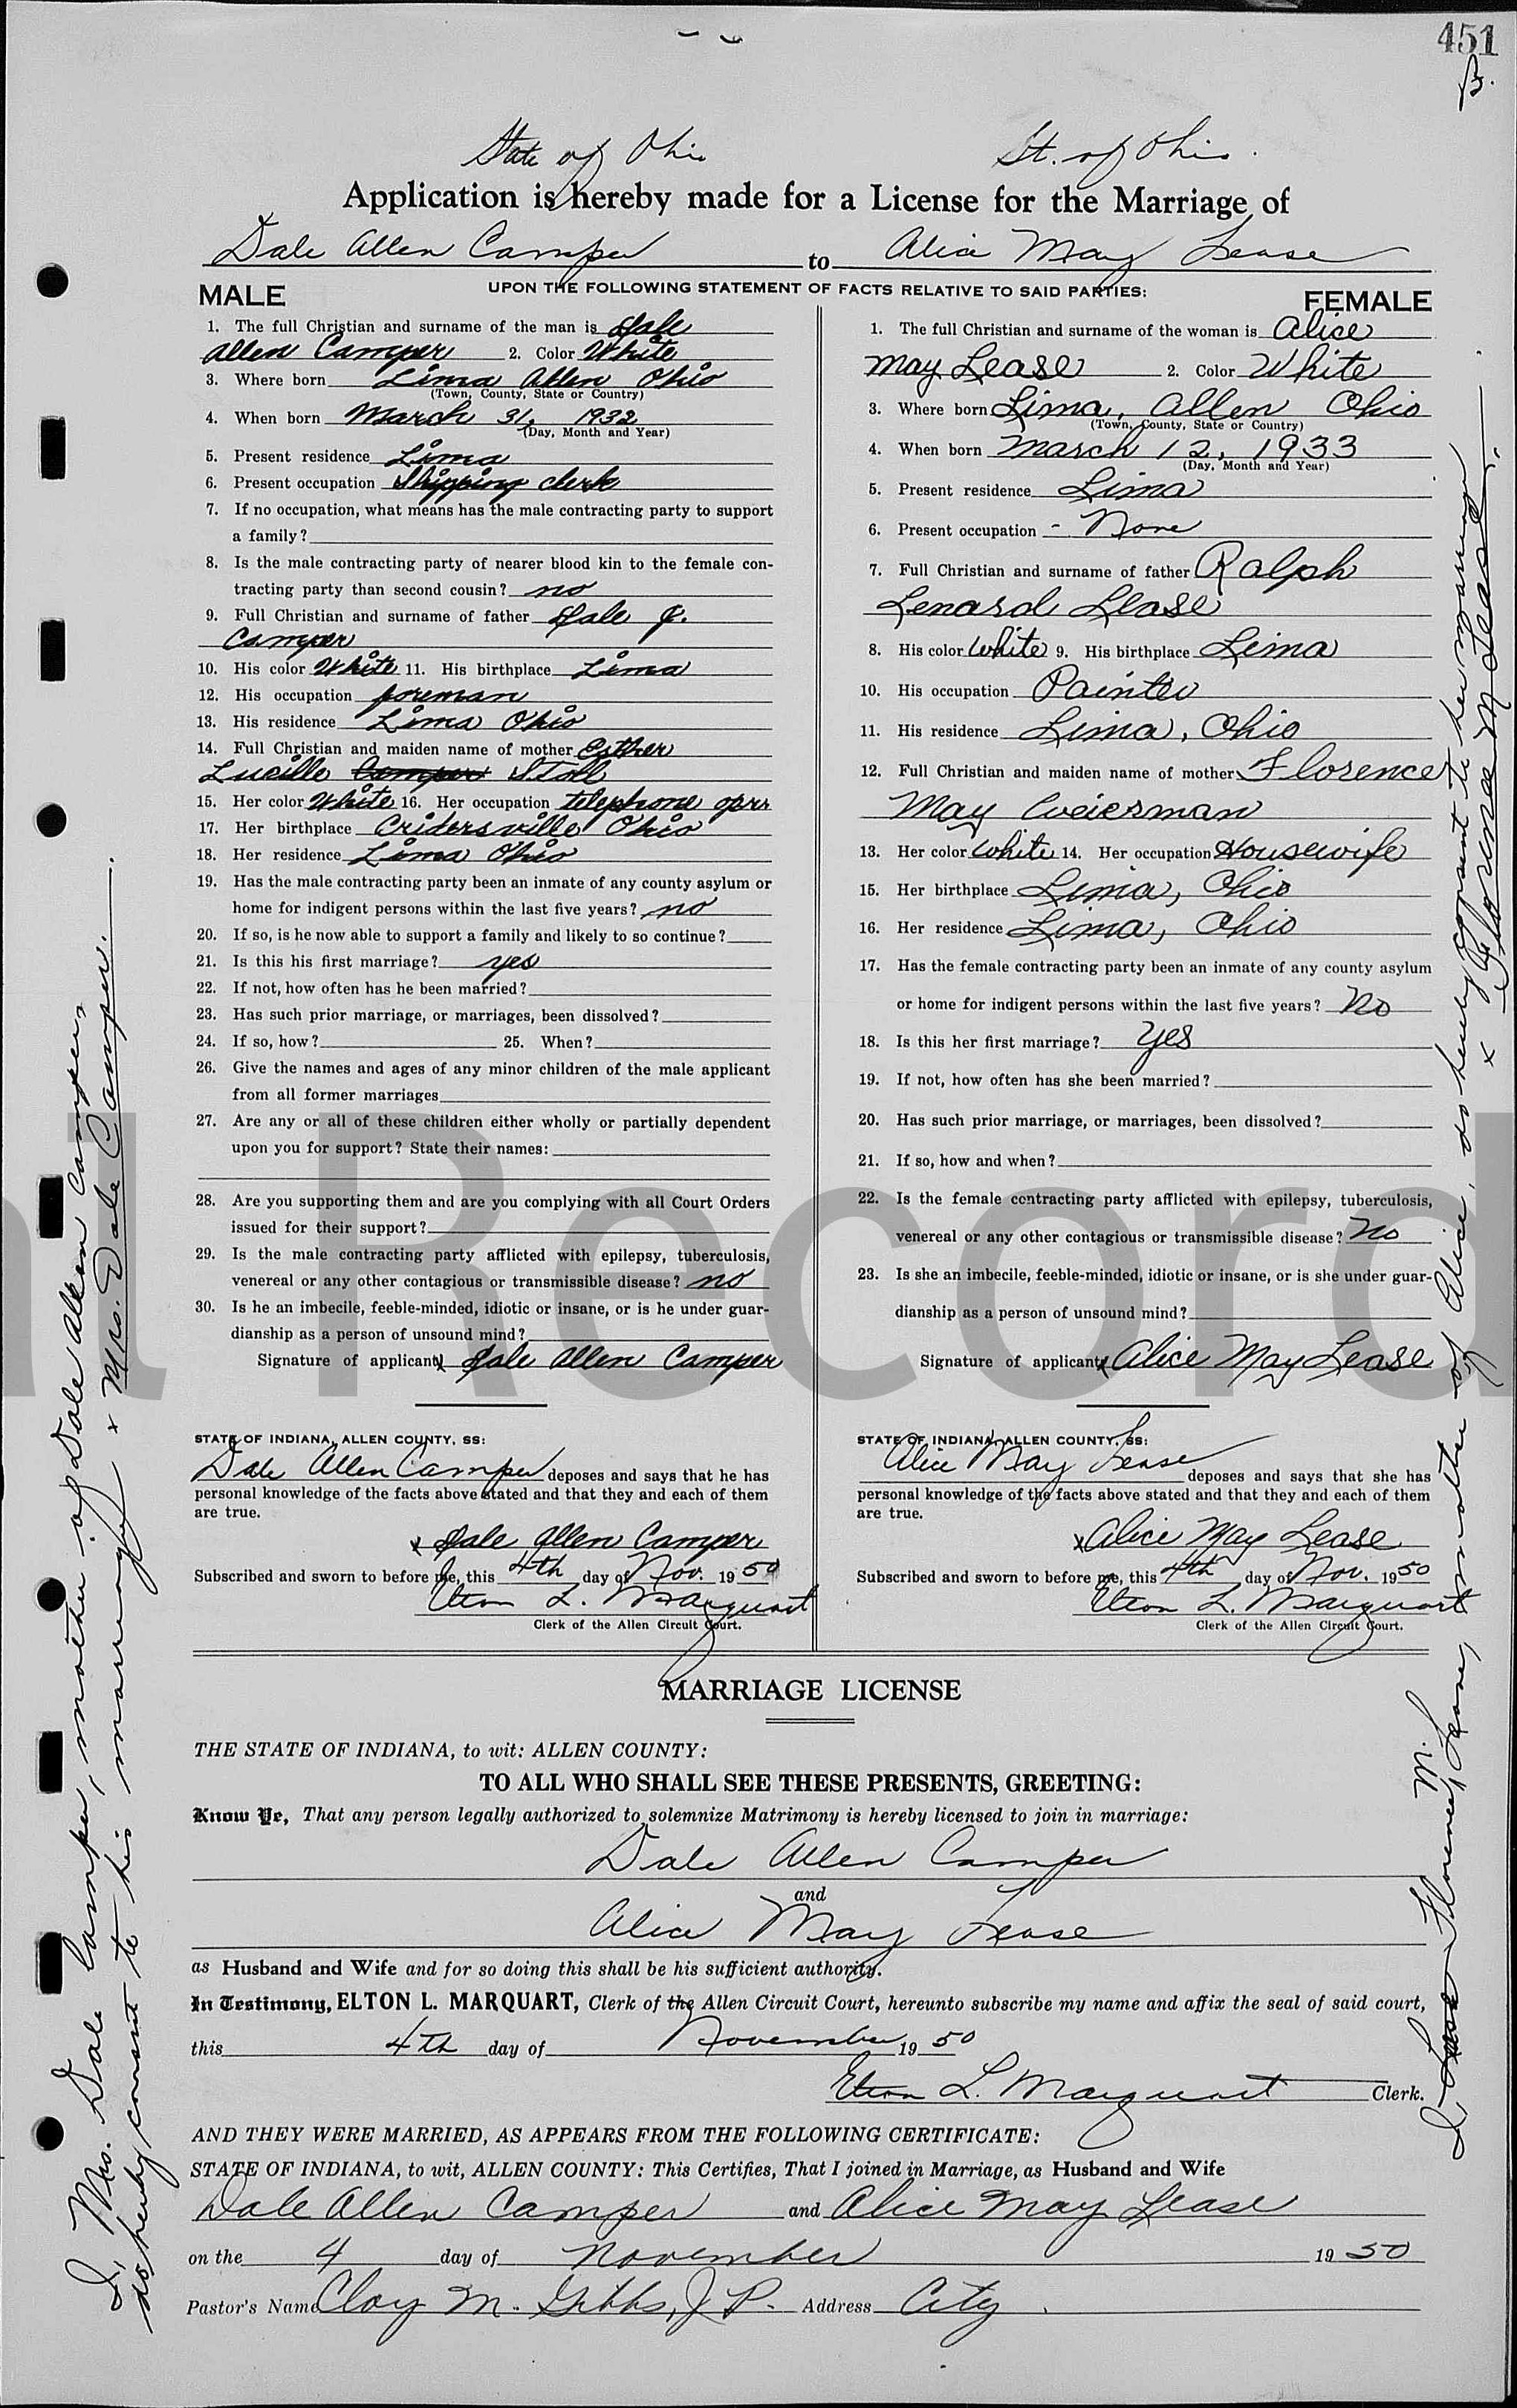 451
State of Ohio St. of Ohio
Application is hereby made for a License for the Marriage of
Dale Allen Camper to Alice May Lease
UPON THE FOLLOWING STATEMENT OF FACTS RELATIVE TO SAID PARTIES:
MALE
1. The full Christian and surname of the man is Dale
Allen Camper 2. Color White
3. Where born Lima Allen Ohio
(Town, County, State or Country)
4. When born March 31, 1932
(Day, Month and Year)
5. Present residence Lima
6. Present occupation Shipping clerk
7. If no occupation, what means has the male contracting party to support
a family?
8. Is the male contracting party of nearer blood kin to the female con-
tracting party than second cousin? no
9. Full Christian and surname of father Dale J.
Camper
10. His color White 11. His birthplace Lima
12. His occupation foreman
13. His residence Lima Ohio
14. Full Christian and maiden name of mother Esther
Lucille Camper Stoll
15. Her color White 16. Her occupation telephone oper
17. Her birthplace Cridersville Ohio
18. Her residence Lima Ohio
19. Has the male contracting party been an inmate of any county asylum or
home for indigent persons within the last five years? no
20. If so, is he now able to support a family and likely to so continue?
21. Is this his first marriage? yes
22. If not, how often has he been married?
23. Has such prior marriage, or marriages, been dissolved?
24. If so, how? 25. When?
26. Give the names and ages of any minor children of the male applicant
from all former marriages
27. Are any or all of these children either wholly or partially dependent
upon you for support? State their names:
28. Are you supporting them and are you complying with all Court Orders
issued for their support?
29. Is the male contracting party afflicted with epilepsy, tuberculosis,
venereal or any other contagious or transmissible disease? no
30. Is he an imbecile, feeble-minded, idiotic or insane, or is he under guar-
dianship as a person of unsound mind?
Signature of applicant x Dale Allen Camper
STATE OF INDIANA, ALLEN COUNTY, SS:
Dale Allen Camper deposes and says that he has
personal knowledge of the facts above stated and that they and each of them
are true.
x Dale Allen Camper
Subscribed and sworn to before me, this 4th day of Nov. 1950
Elton L. Marquart
Clerk of the Allen Circuit Court.
FEMALE
1. The full Christian and surname of the woman is Alice
May Lease 2. Color White
3. Where born Lima, Allen Ohio
(Town, County, State or Country)
4. When born March 12, 1933
(Day, Month and Year)
5. Present residence Lima
6. Present occupation - None
7. Full Christian and surname of father Ralph
Lenard Lease
8. His color White 9. His birthplace Lima
10. His occupation Painter
11. His residence Lima, Ohio
12. Full Christian and maiden name of mother Florence
May Weierman
13. Her color White 14. Her occupation Housewife
15. Her birthplace Lima, Ohio
16. Her residence Lima, Ohio
17. Has the female contracting party been an inmate of any county asylum
or home for indigent persons within the last five years? No
18. Is this her first marriage? Yes
19. If not, how often has she been married?
20. Has such prior marriage, or marriages, been dissolved?
21. If so, how and when?
22. Is the female contracting party afflicted with epilepsy, tuberculosis,
venereal or any other contagious or transmissible disease? No
23. Is she an imbecile, feeble-minded, idiotic or insane, or is she under guar-
dianship as a person of unsound mind?
Signature of applicant x Alice May Lease
STATE OF INDIANA, ALLEN COUNTY, SS:
Alice May Lease deposes and says that she has
personal knowledge of the facts above stated and that they and each of them
are true.
x Alice May Lease
Subscribed and sworn to before me, this 4th day of Nov. 1950
Elton L. Marquart
Clerk of the Allen Circuit Court.
MARRIAGE LICENSE
THE STATE OF INDIANA, to wit: ALLEN COUNTY:
TO ALL WHO SHALL SEE THESE PRESENTS, GREETING:
Know Ye, That any person legally authorized to solemnize Matrimony is hereby licensed to join in marriage:
Dale Allen Camper
and
Alice May Lease
as Husband and Wife and for so doing this shall be his sufficient authority.
In Testimony, ELTON L. MARQUART, Clerk of the Allen Circuit Court, hereunto subscribe my name and affix the seal of said court,
this 4th day of November 1950
Elton L. Marquart Clerk.
AND THEY WERE MARRIED, AS APPEARS FROM THE FOLLOWING CERTIFICATE:
STATE OF INDIANA, to wit, ALLEN COUNTY: This Certifies, That I joined in Marriage, as Husband and Wife
Dale Allen Camper and Alice May Lease
on the 4 day of November 1950
Pastor's Name Cloy M. Gibbs, J P. Address City.
I, Mrs. Dale Camper, mother of Dale Allen Camper,
do hereby consent to his marriage x Mrs. Dale Camper.
I Florence M. Lease, mother of Alice, do hereby consent to her marriage
x Florence M Lease
Record